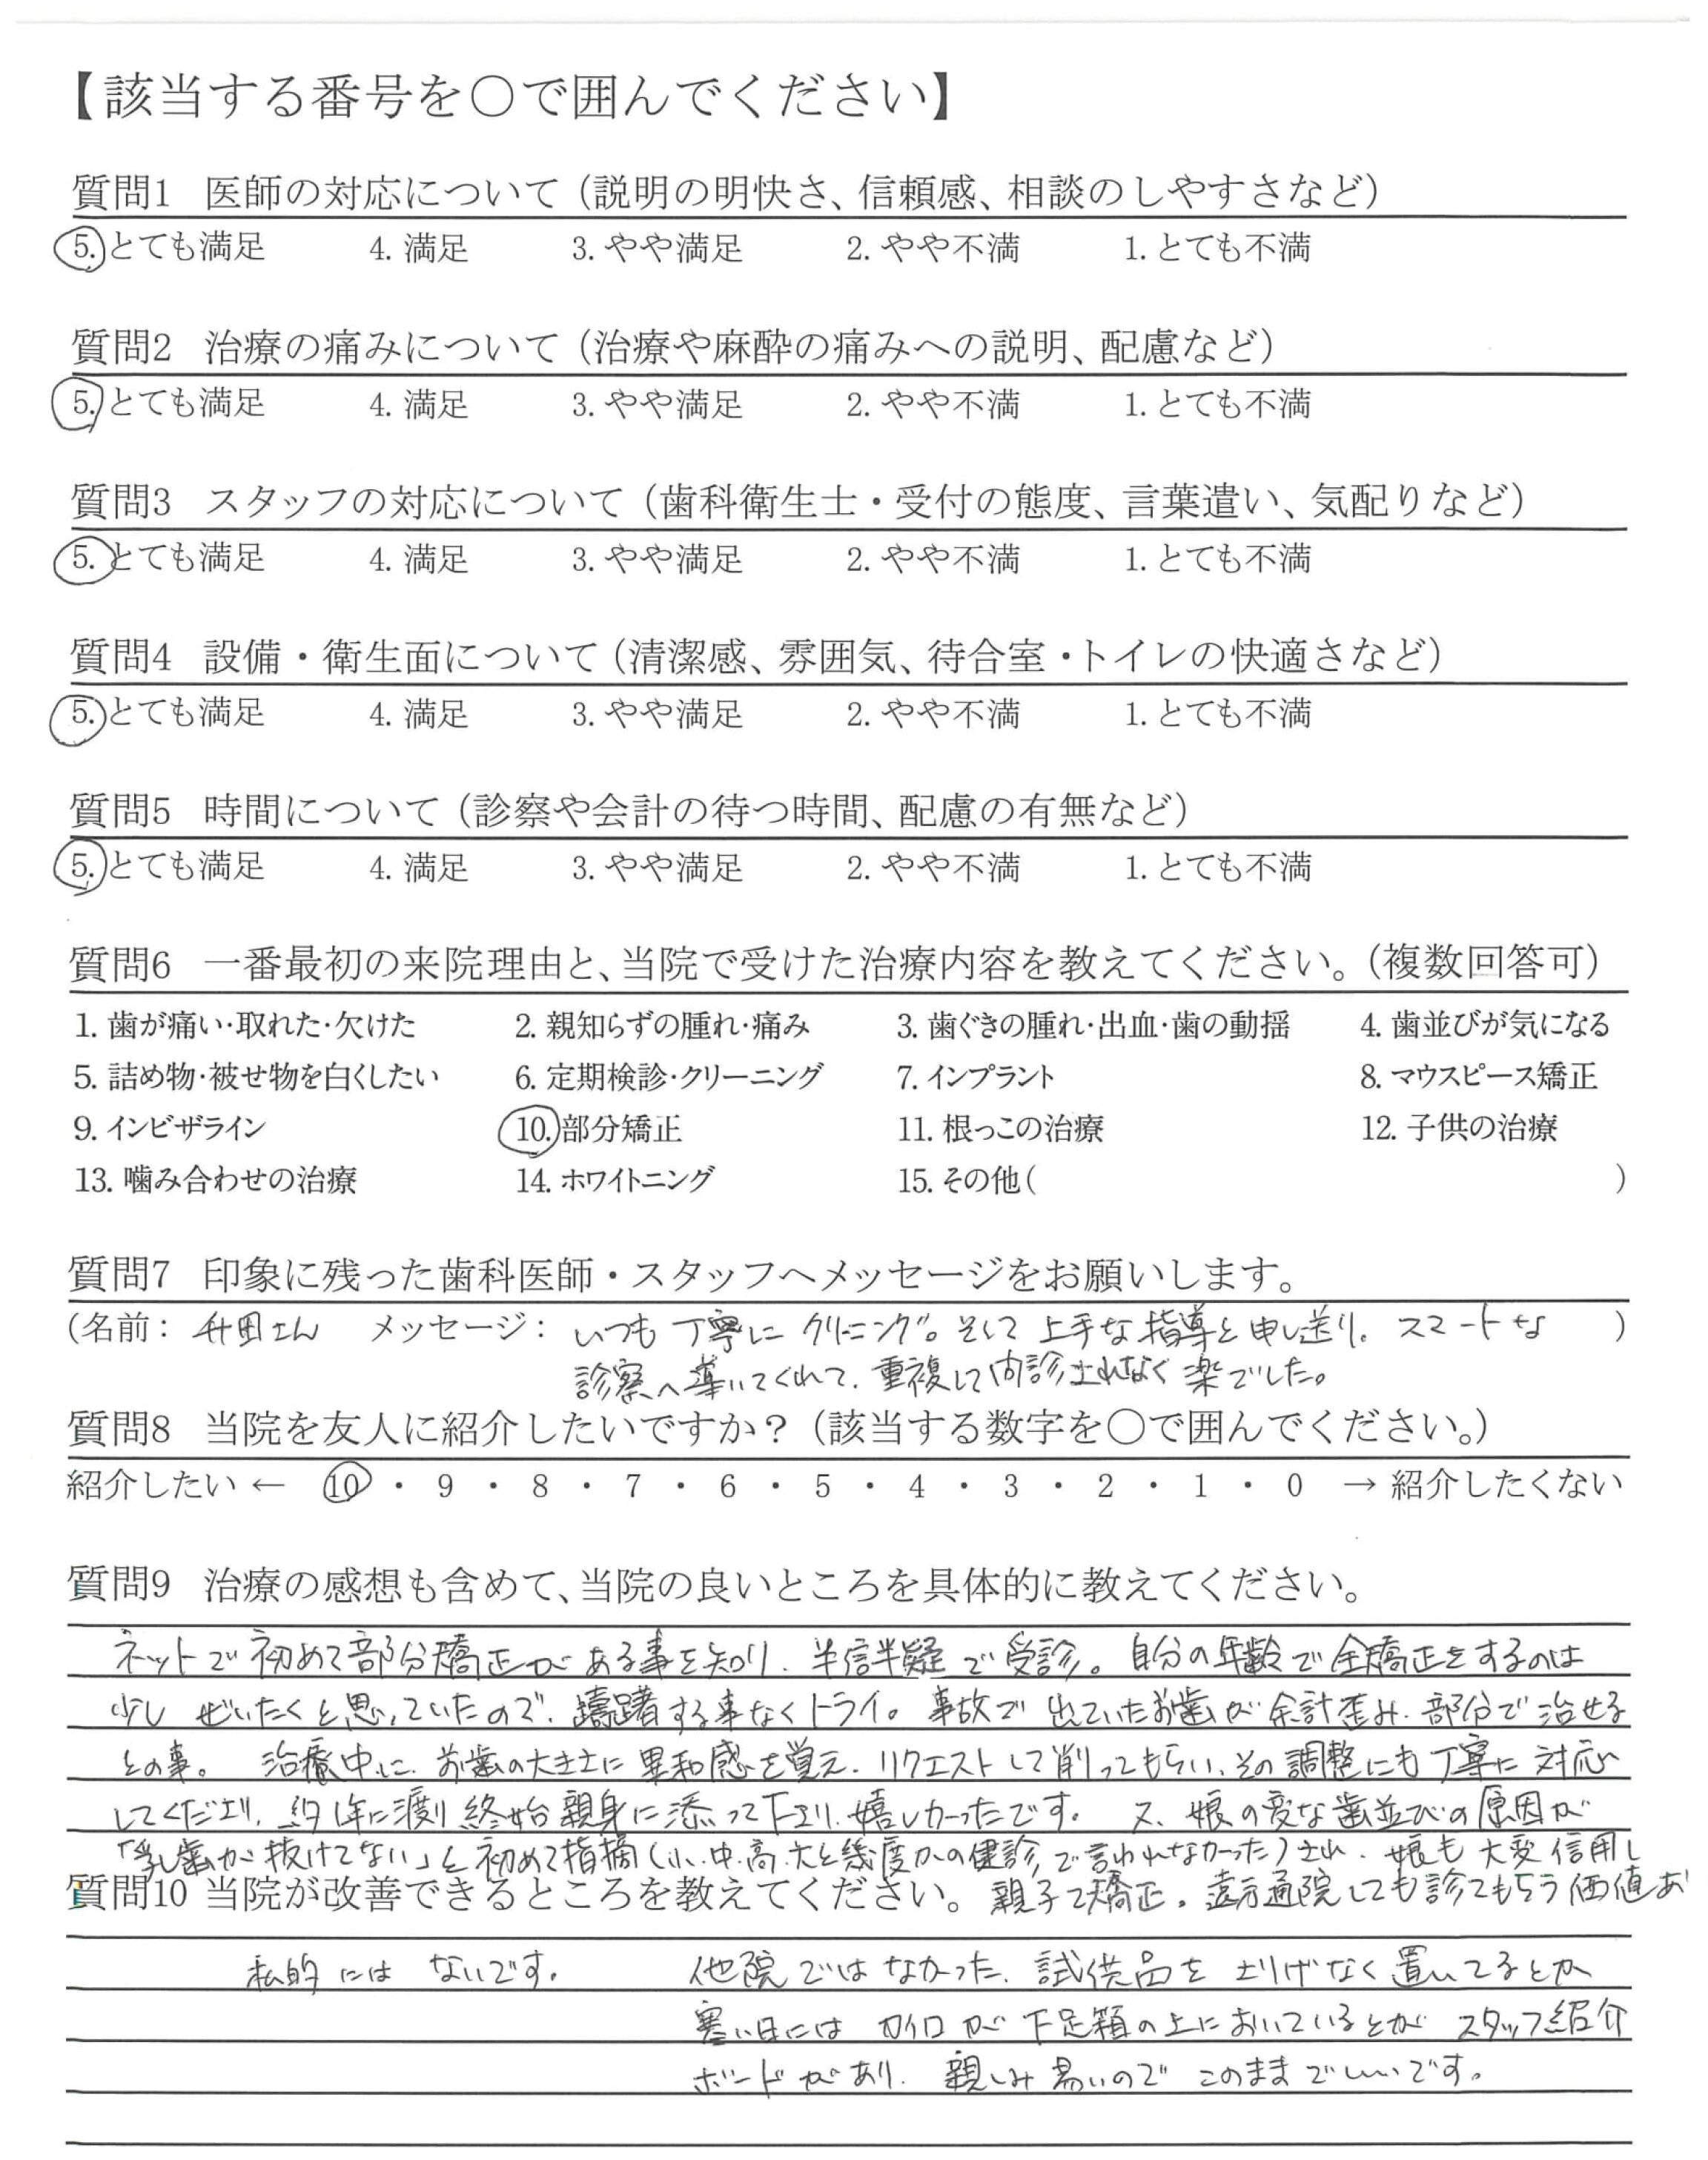 【該当する番号を○で囲んでください】
質問1 医師の対応について（説明の明快さ、信頼感、相談のしやすさなど）
5. とても満足 4. 満足 3. やや満足 2. やや不満 1. とても不満
質問2 治療の痛みについて（治療や麻酔の痛みへの説明、配慮など）
5. とても満足 4. 満足 3. やや満足 2. やや不満 1. とても不満
質問3 スタッフの対応について（歯科衛生士・受付の態度、言葉遣い、気配りなど）
5. とても満足 4. 満足 3. やや満足 2. やや不満 1. とても不満
質問4 設備・衛生面について（清潔感、雰囲気、待合室・トイレの快適さなど）
5. とても満足 4. 満足 3. やや満足 2. やや不満 1. とても不満
質問5 時間について（診察や会計の待つ時間、配慮の有無など）
5. とても満足 4. 満足 3. やや満足 2. やや不満 1. とても不満
質問6 一番最初の来院理由と、当院で受けた治療内容を教えてください。（複数回答可）
1. 歯が痛い・取れた・欠けた 2. 親知らずの腫れ・痛み 3. 歯ぐきの腫れ・出血・歯の動揺 4. 歯並びが気になる
5. 詰め物・被せ物を白くしたい 6. 定期検診・クリーニング 7. インプラント 8. マウスピース矯正
9. インビザライン 10. 部分矯正 11. 根っこの治療 12. 子供の治療
13. 噛み合わせの治療 14. ホワイトニング 15. その他（ ）
質問7 印象に残った歯科医師・スタッフへメッセージをお願いします。
（名前： 升田さん メッセージ： いつも丁寧にクリーニング。そして上手な指導と申し送り。スマートな ）
診察へ導いてくれて、重複して内診されなく楽でした。
質問8 当院を友人に紹介したいですか？（該当する数字を○で囲んでください。）
紹介したい ← 10 ・ 9 ・ 8 ・ 7 ・ 6 ・ 5 ・ 4 ・ 3 ・ 2 ・ 1 ・ 0 → 紹介したくない
質問9 治療の感想も含めて、当院の良いところを具体的に教えてください。
ネットで初めて部分矯正がある事を知り、半信半疑で受診。自分の年齢で全矯正をするのは
少しぜいたくと思っていたので、躊躇する事なくトライ。事故で出ていたお歯が余計歪み、部分で治せる
との事。 治療中に、お歯の大きさに異和感を覚え、リクエストして削ってもらい、その調整にも丁寧に対応
してくださり、約1年に渡り終始親身に添って下さり、嬉しかったです。 又、娘の変な歯並びの原因が
「乳歯が抜けてない」と初めて指摘（小、中、高、大と幾度かの健診で言われなかった）され、娘も大変信用し
質問10 当院が改善できるところを教えてください。 親子で矯正。遠方通院しても診てもらう価値あ
私的にはないです。 他院ではなかった、試供品をさりげなく置いてるとか
寒い日にはカイロが下足箱の上においているとか スタッフ紹介
ボードがあり、親しみ易いのでこのままでいいです。